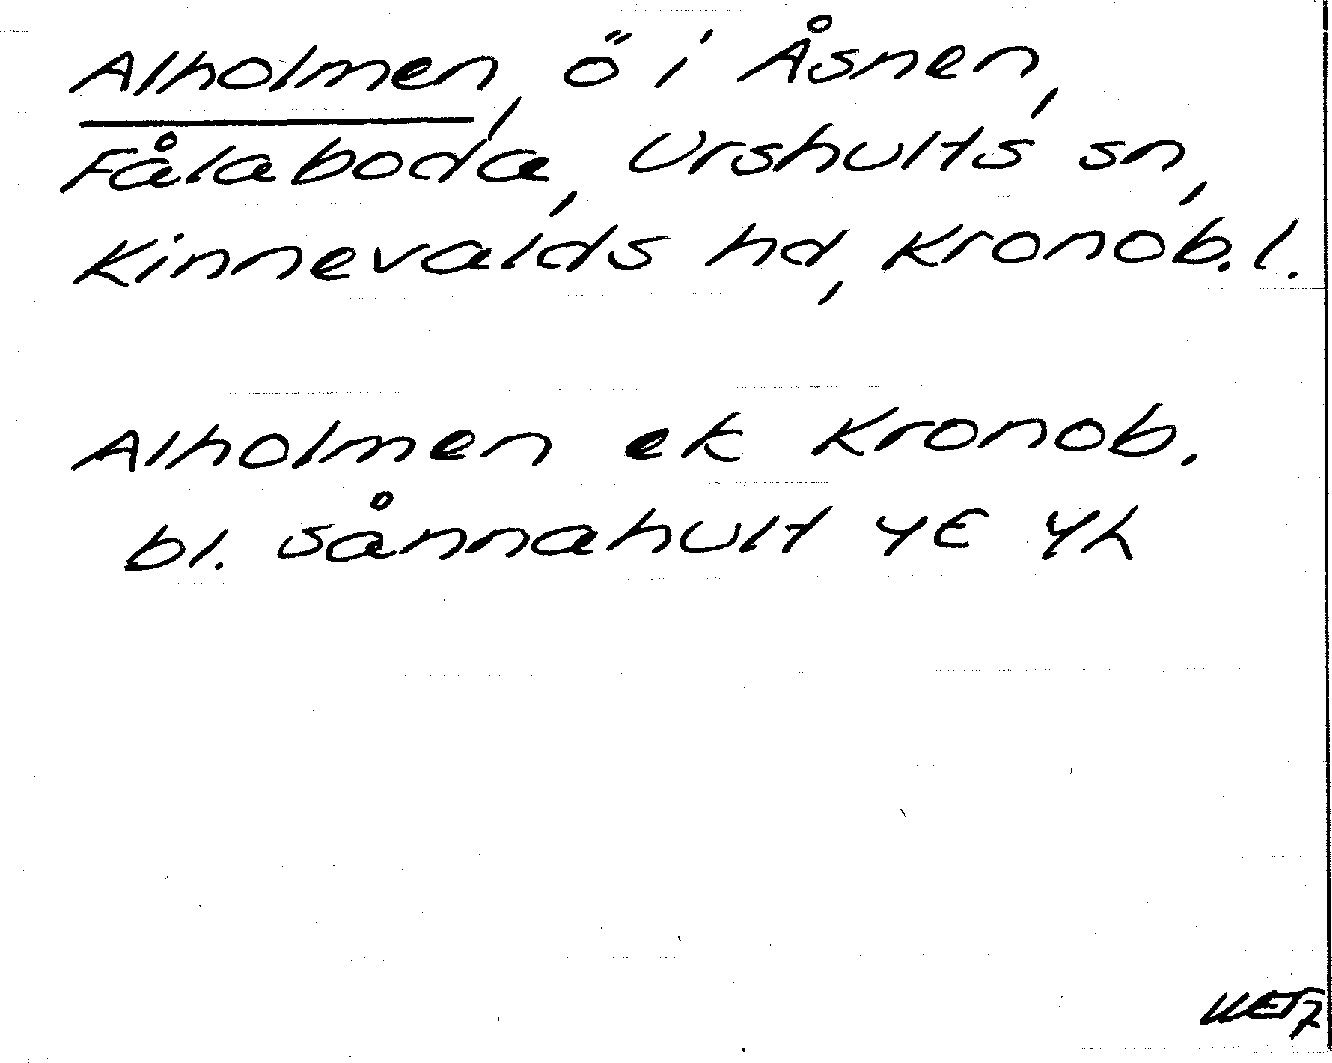 Alholmen, ö i Åsnen,
Fålaboda, Urshults sn,
Kinnevalds hd, Kronob.l.
Alholmen ek Kronob.
bl. Sånnahult 4E 4h